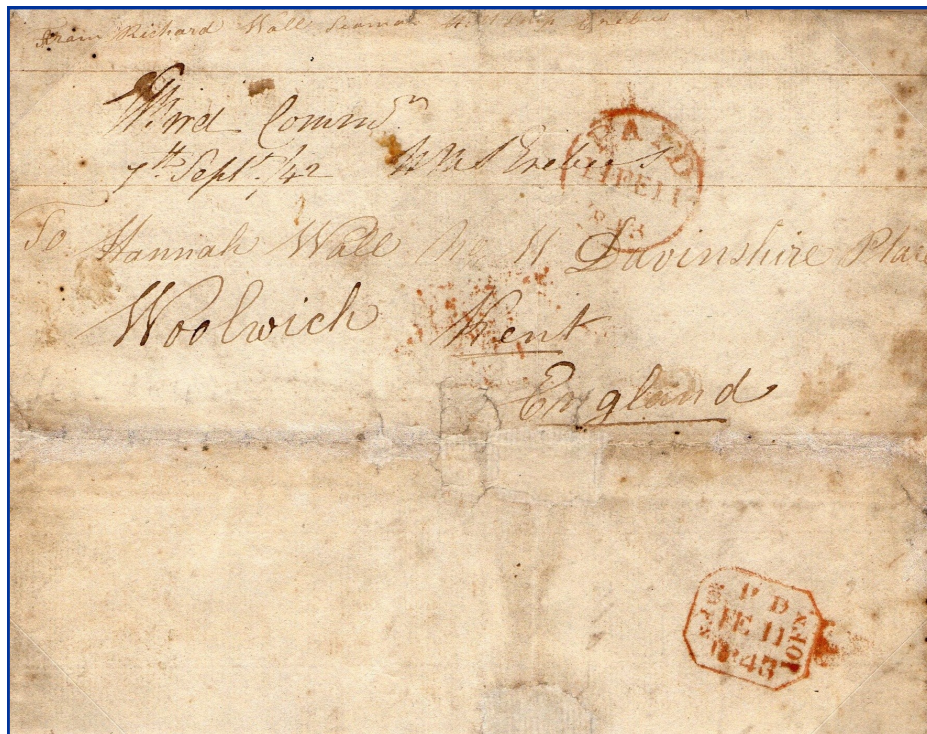 From Richard Wall Seaman H.M Ship Erebus
Comm^n
7th Sept^r/42 HMS Erebus
PAID
11FE11
1843
To Hannah Wall No 11 Davinshire Place
Woolwich Kent
England
P D
FE 11
1843